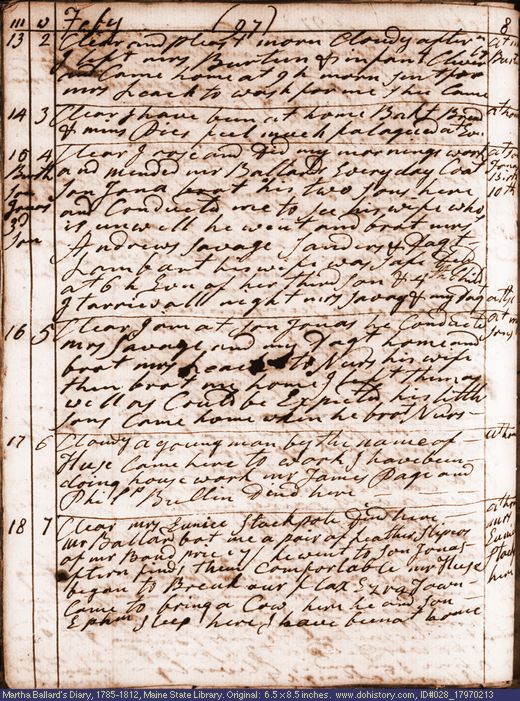 m w Feby (97) 8
13 2 Clear and pleast morn Cloudy aftern at mr
I left mrs Burtun & infant Cleverly Burt
and Came home at 9 h morn sent for
mrs Leach to wash for me shee Came
14 3 Clear I have been at home Bakt Bred at hom
& mins Pies feel much fatagued at Evn
15 4 Clear I rose and did my mornings work at son
Birth and mended mr Ballards Every day Coat Jonas
son Jona brot his two sons here Birth
Jonas and Conducted me to see his wife who 10th
3d is unwell he went and brot mrs
son Andrews Savage Sanders & Dagt
Lambart his wife was safe Delivd
at 6 h Evn of her third son & 4th Child
I tarried all night mrs Savage & my dagt
16 5 Clear I am at son Jonas he Conducted at my
mrs Savage and my Dagt home and sons
brot mrs Leach to Nurs his wife
then brot me home I left them as
well as Could be Expected his little
sons Came home when he brot Nurs
17 6 Cloudy a young man by the name of at hom
Huse Came here to work I have been
doing house work mr James Page and
Philip Bullin Dind here
18 7 Clear mrs Eunice Stackpole dind here at hom
mr Ballard bot me a pair of leather Slipers mrs
of mr Bond price / he went to son Jonas Eunice
aftern finds them Comfortable mr Huse Stackpole
began to Break our flax Ezra Town here
Came to bring a Cow here he and son
Ephm sleep here I have been at home
Martha Ballard's Diary, 1785-1812, Maine State Library. Original: 6.5 x 8.5 inches. www.dohistory.com, ID#028_17970213